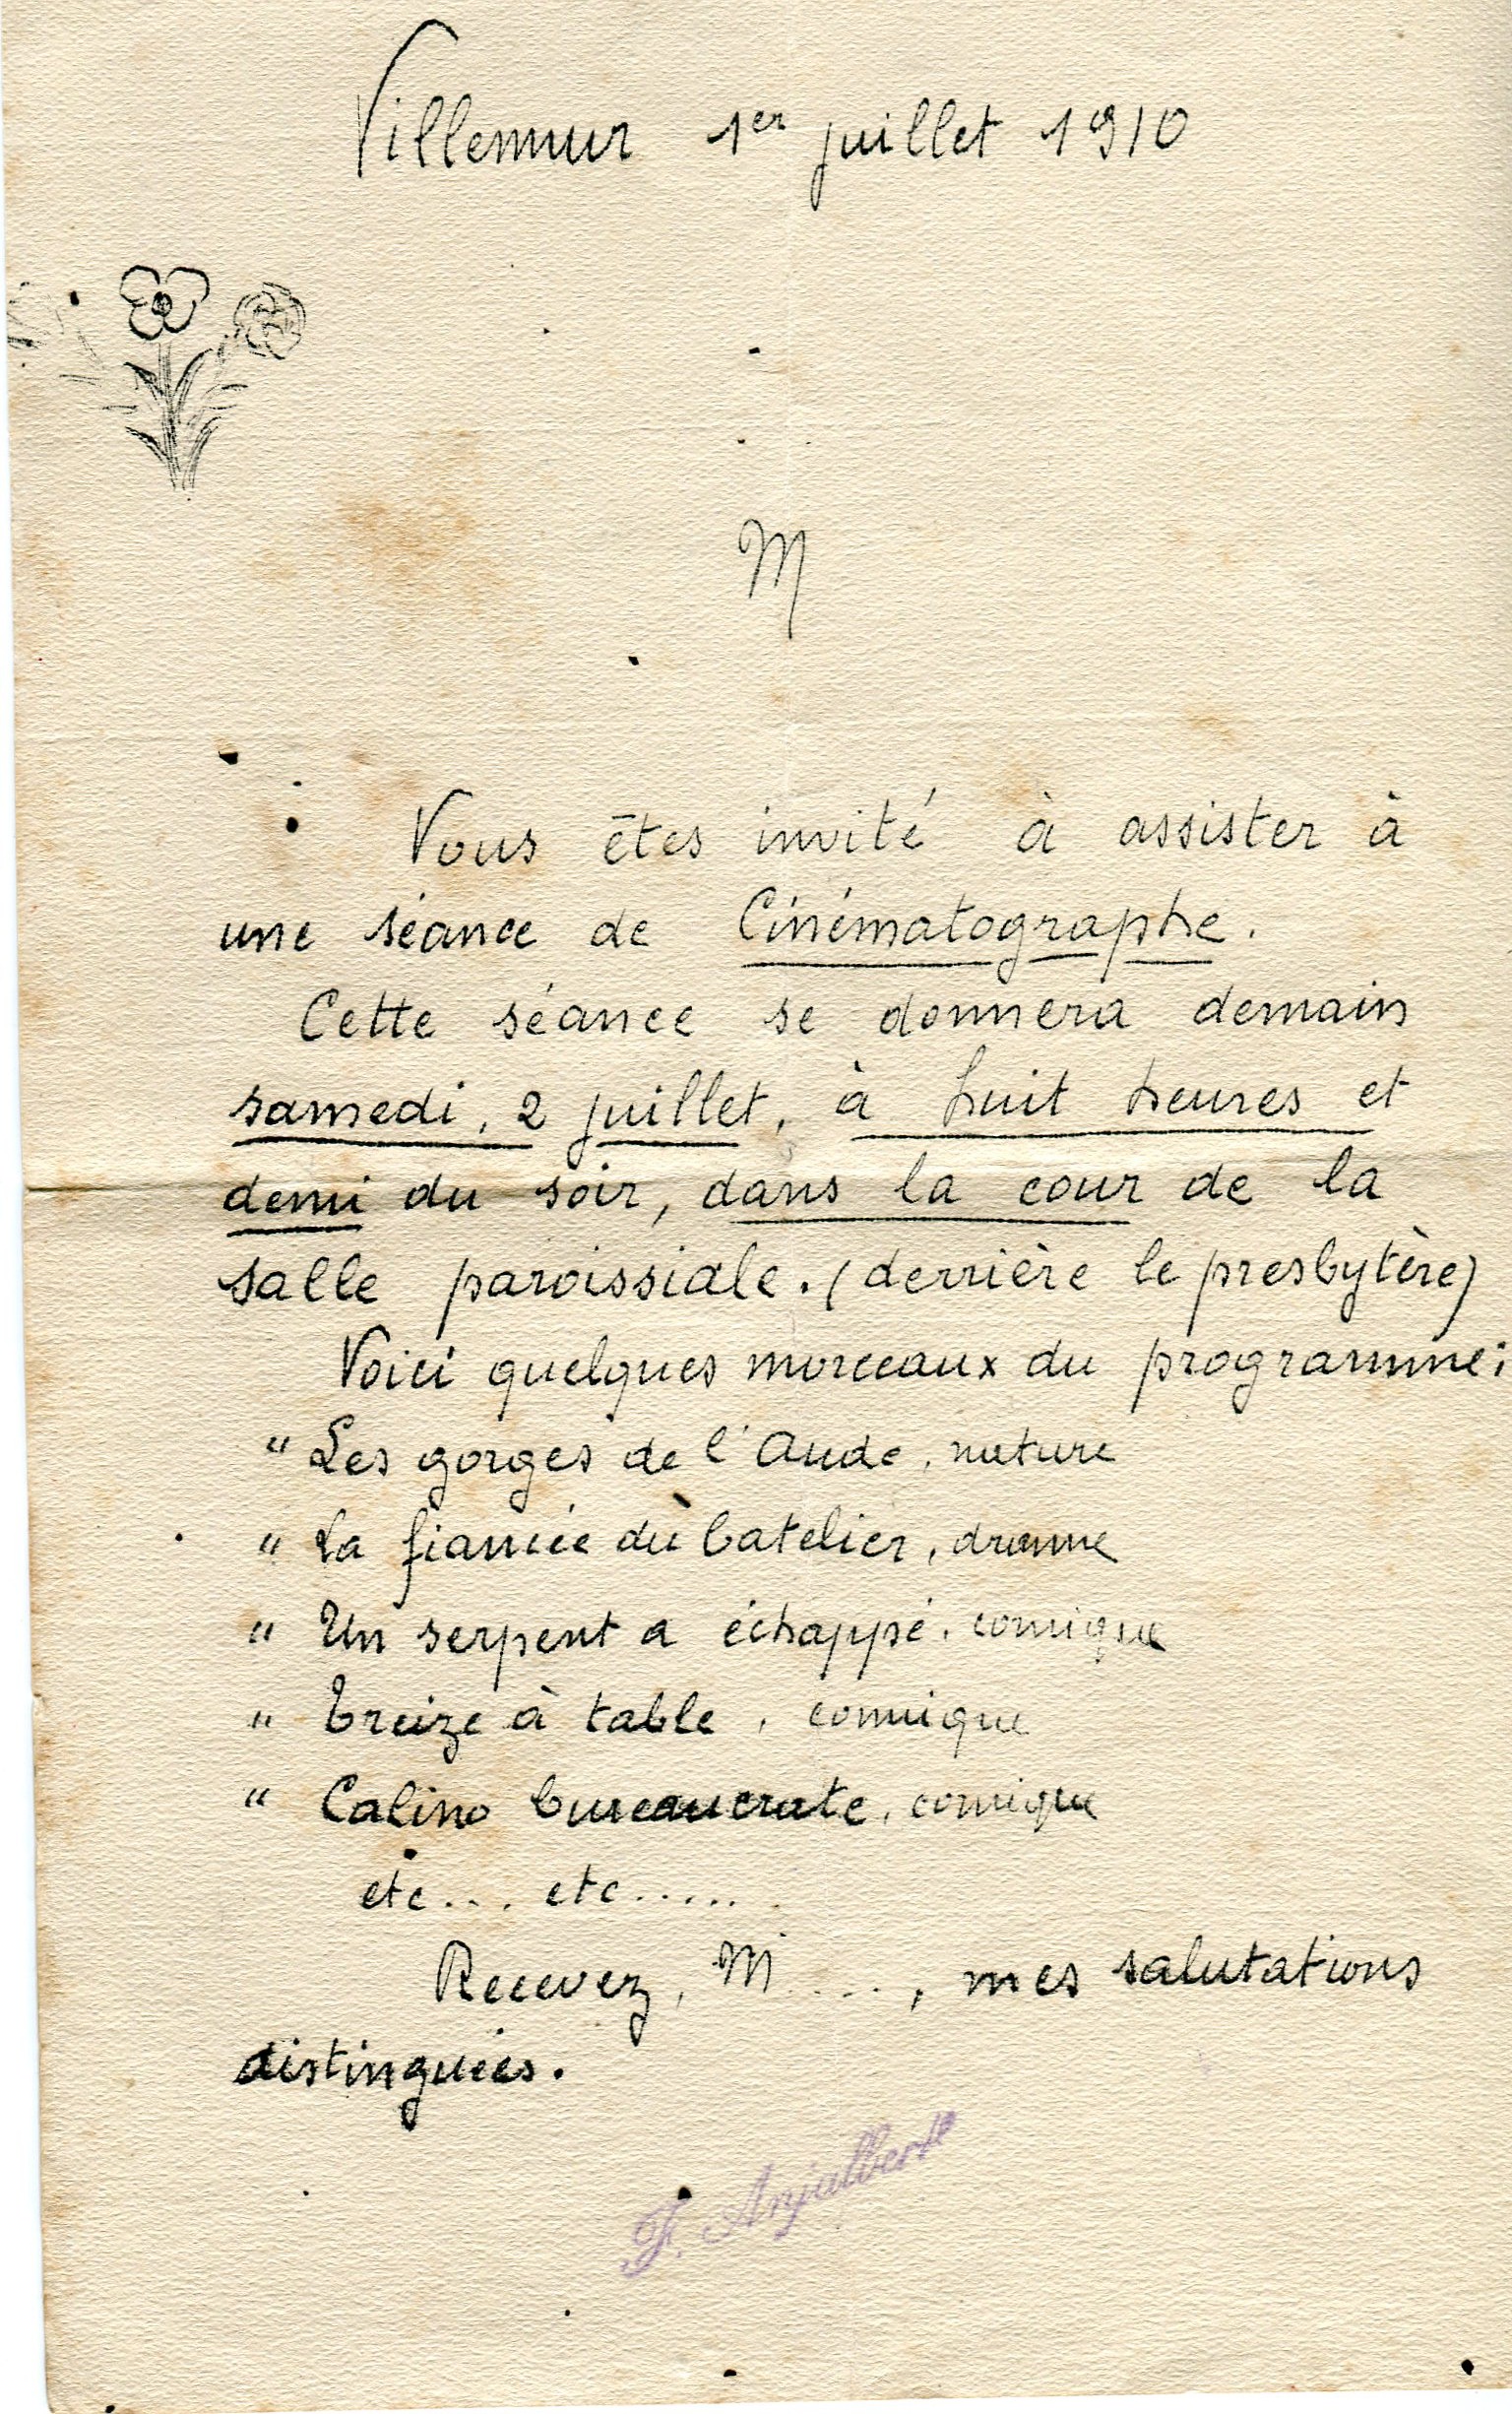 Villemur 1er juillet 1910
M
Vous êtes invité à assister à
une séance de Cinématographe.
Cette séance se donnera demain
samedi, 2 juillet, à huit heures et
demi du soir, dans la cour de la
salle paroissiale. (derrière le presbytère)
Voici quelques morceaux du programme:
" Les gorges de l'Aude, nature
" La fiancée du batelier, drame
" Un serpent a échappé, comique
" Treize à table, comique
" Calino bureaucrate, comique
etc... etc.....
Recevez, M....., mes salutations
distinguées.
F. Anjalbert